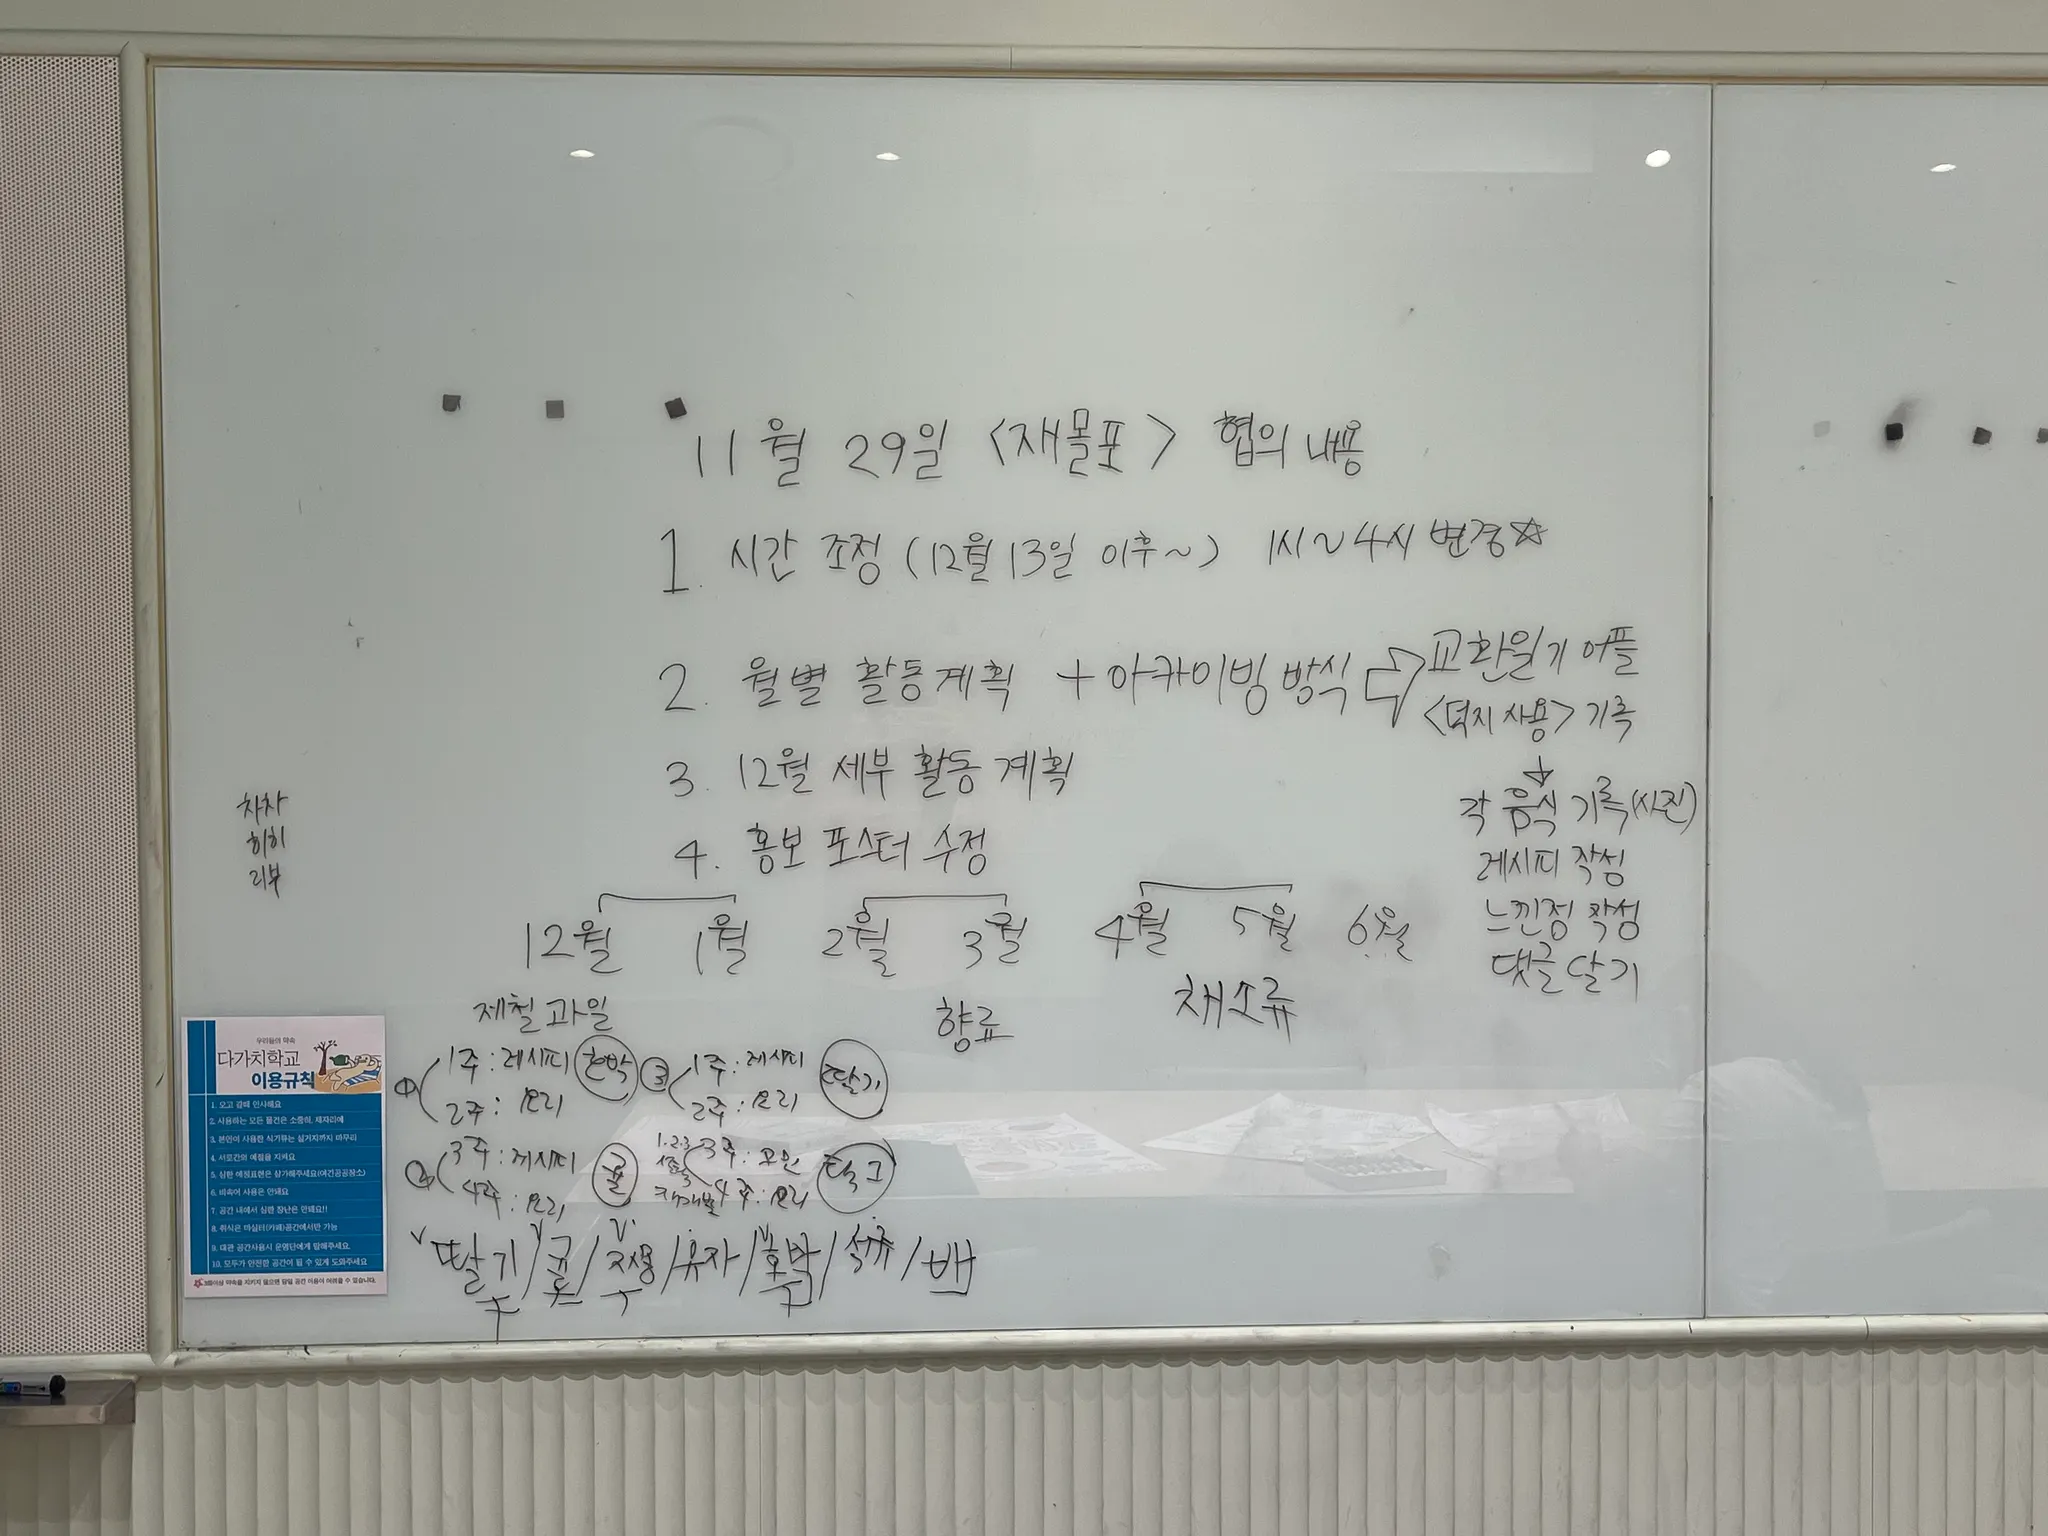 11월 29일 <재물포> 협의 내용
1. 시간 조정 (12월 13일 이후~) 1시~4시 변경☆
2. 월별 활동계획 + 아카이빙 방식 ⇨ 교환일기 어플
<덕지 사용> 기록
↓
각 음식 기록(사진)
레시피 작성
느낀점 작성
댓글 달기
3. 12월 세부 활동 계획
4. 홍보 포스터 수정
차차
히히
리부
12월 1월 2월 3월 4월 5월 6월
제철 과일 향료 채소류
① 1주: 레시피 호박
2주: 요리
② 3주: 레시피 귤
4주: 요리
③ 1주: 레시피 딸기
2주: 요리
1·2·3
3주:
4주: 요리
딸기/귤/ /유자/호박/석류/배
우리들의 약속
다가치학교
이용규칙
1. 오고 갈때 인사해요
2. 사용하는 모든 물건은 소중히, 제자리에
3. 본인이 사용한 식기류는 설거지까지 마무리
4. 서로간의 예절을 지켜요
5. 심한 애정표현은 삼가해주세요(여긴공공장소)
6. 비속어 사용은 안돼요
7. 공간 내에서 심한 장난은 안돼요!!
8. 취식은 마실터(카페)공간에서만 가능
9. 대관 공간사용시 운영단에게 말해주세요
10. 모두가 안전한 공간이 될 수 있게 도와주세요
이상 약속을 지키지 않으면 당일 공간 이용이 어려울 수 있습니다.